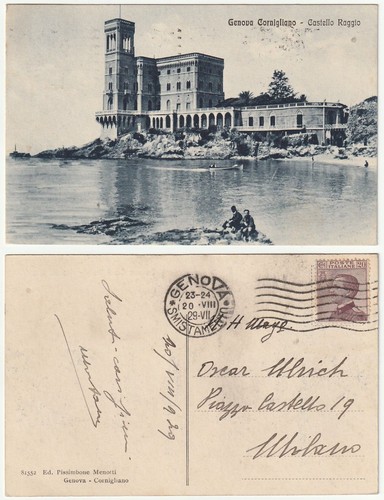 Genova Cornigliano - Castello Raggio
GENOVA
23-24
20·VIII
29-VII
SMISTAMENTO
POSTE ITALIANE
20/VIII/929
Oscar Ulrich
Piazza Castello 19
Milano
81552 Ed. Pissimbone Menotti
Genova - Cornigliano